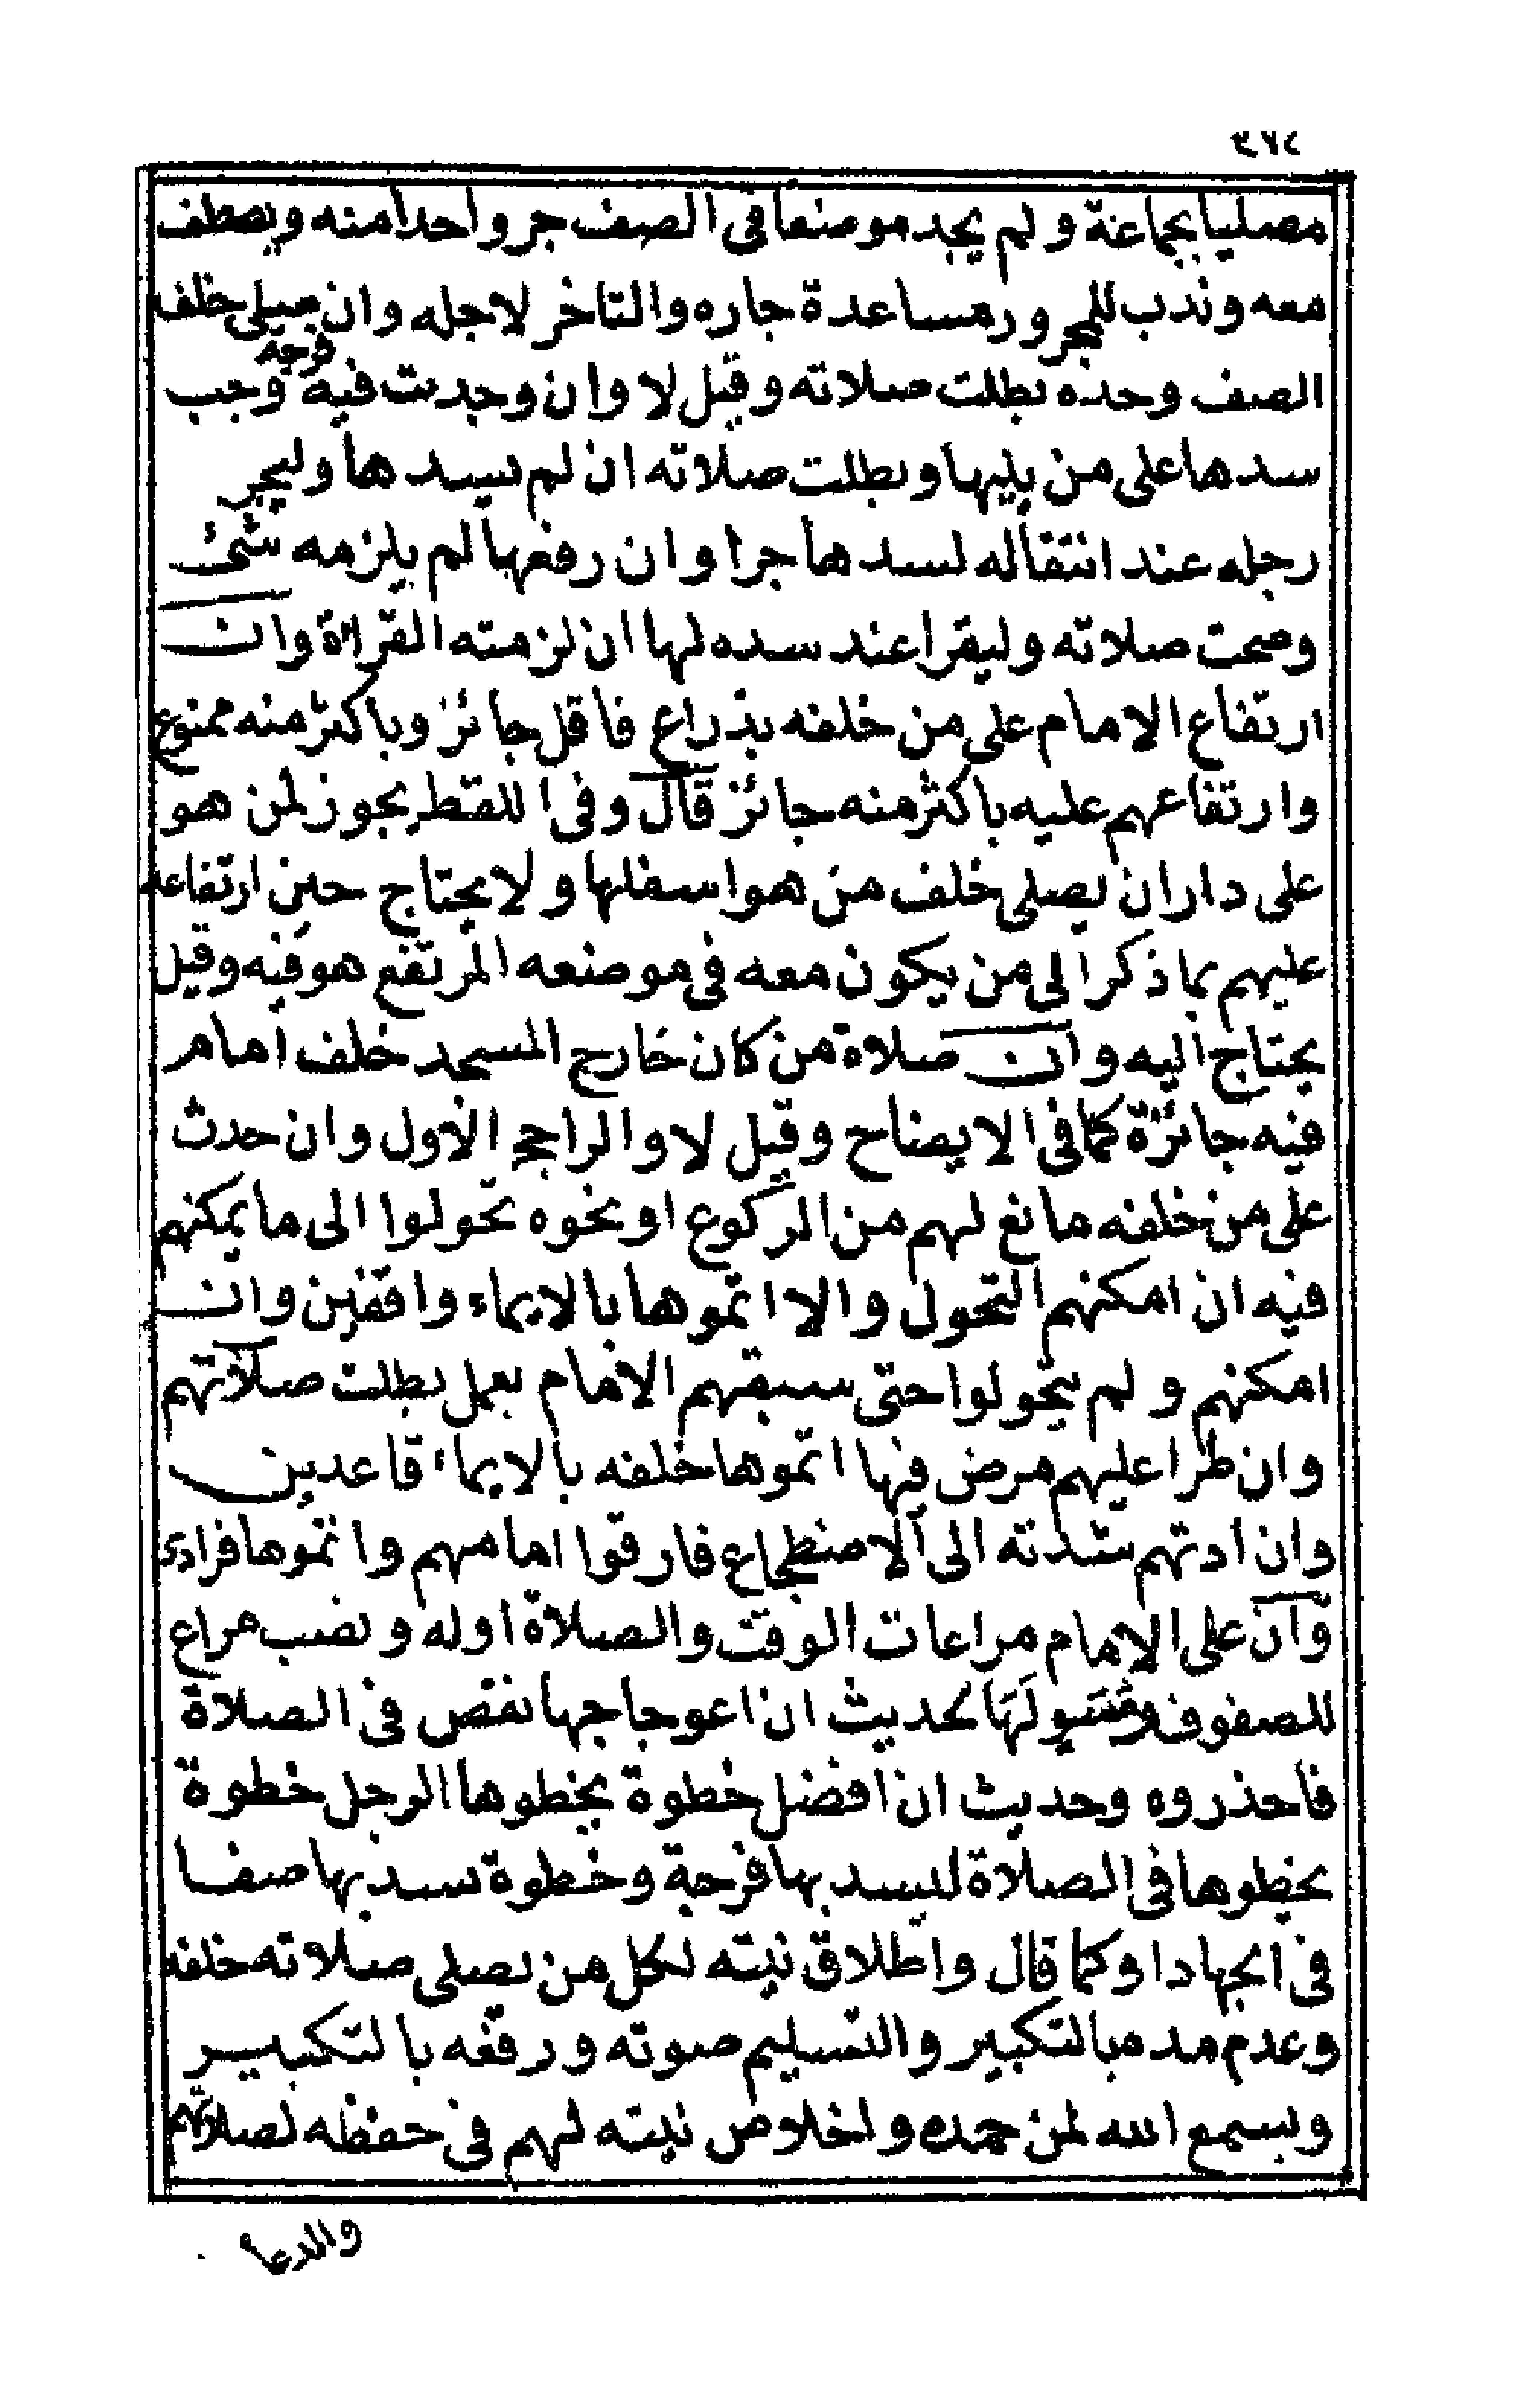 ٣٧٤
مصليا بجماعة ولم يجد موضعا فى الصف جر واحدا منه ويصطف
معه وندب للمجرور مساعدة جاره والتاخر لاجله وان صلى خلف
الصف وحده بطلت صلاته وقيل لا وان وجدت فيه فرجة وجب
سدها على من يليها وبطلت صلاته ان لم يسدها وليجر
رجله عند انتقاله لسدها جرا وان رفعها لم يلزمه شئ
وصحت صلاته وليقرا عند سده لها ان لزمته القراة وان
ارتفاع الامام على من خلفه بذراع فاقل جائز وباكثر منه ممنوع
وارتفاعهم عليه باكثر منه جائز قال وفى اللقط يجوز لمن هو
على دار ان يصلى خلف من هو اسفلها ولا يحتاج حين ارتفاعه
عليهم بما ذكر الى من يكون معه فى موضعه المرتفع هو فيه وقيل
يحتاج اليه وان صلاة من كان خارج المسجد خلف امام
فيه جائزة كما فى الايضاح وقيل لا والراجح الاول وان حدث
على من خلفه مانع لهم من الركوع او نحوه تحولوا الى ما يمكنهم
فيه ان امكنهم التحول والا اتموها بالايماء واقفين وان
امكنهم ولم يتحولوا حتى سبقهم الامام بعمل بطلت صلاتهم
وان طرا عليهم مرض فيها اتموها خلفه بالايماء قاعدين
وان ادتهم شدته الى الاضطجاع فارقوا امامهم واتموها فرادى
وان على الامام مراعات الوقت والصلاة اوله ونصب مراع
للصفوف ومسو لها لحديث ان اعوجاجها نقص فى الصلاة
فاحذروه وحديث ان افضل خطوة يخطوها الرجل خطوة
يخطوها فى الصلاة ليسد بها فرجة وخطوة سد بها صفا
فى الجهاد او كما قال واطلاق نيته لكل من يصلى صلاته خلفه
وعدم مده بالتكبير والتسليم صوته ورفعه بالتكبير
وبسمع الله لمن حمده واخلاص نيته لهم فى حفظه لصلاتهم
والدعاء